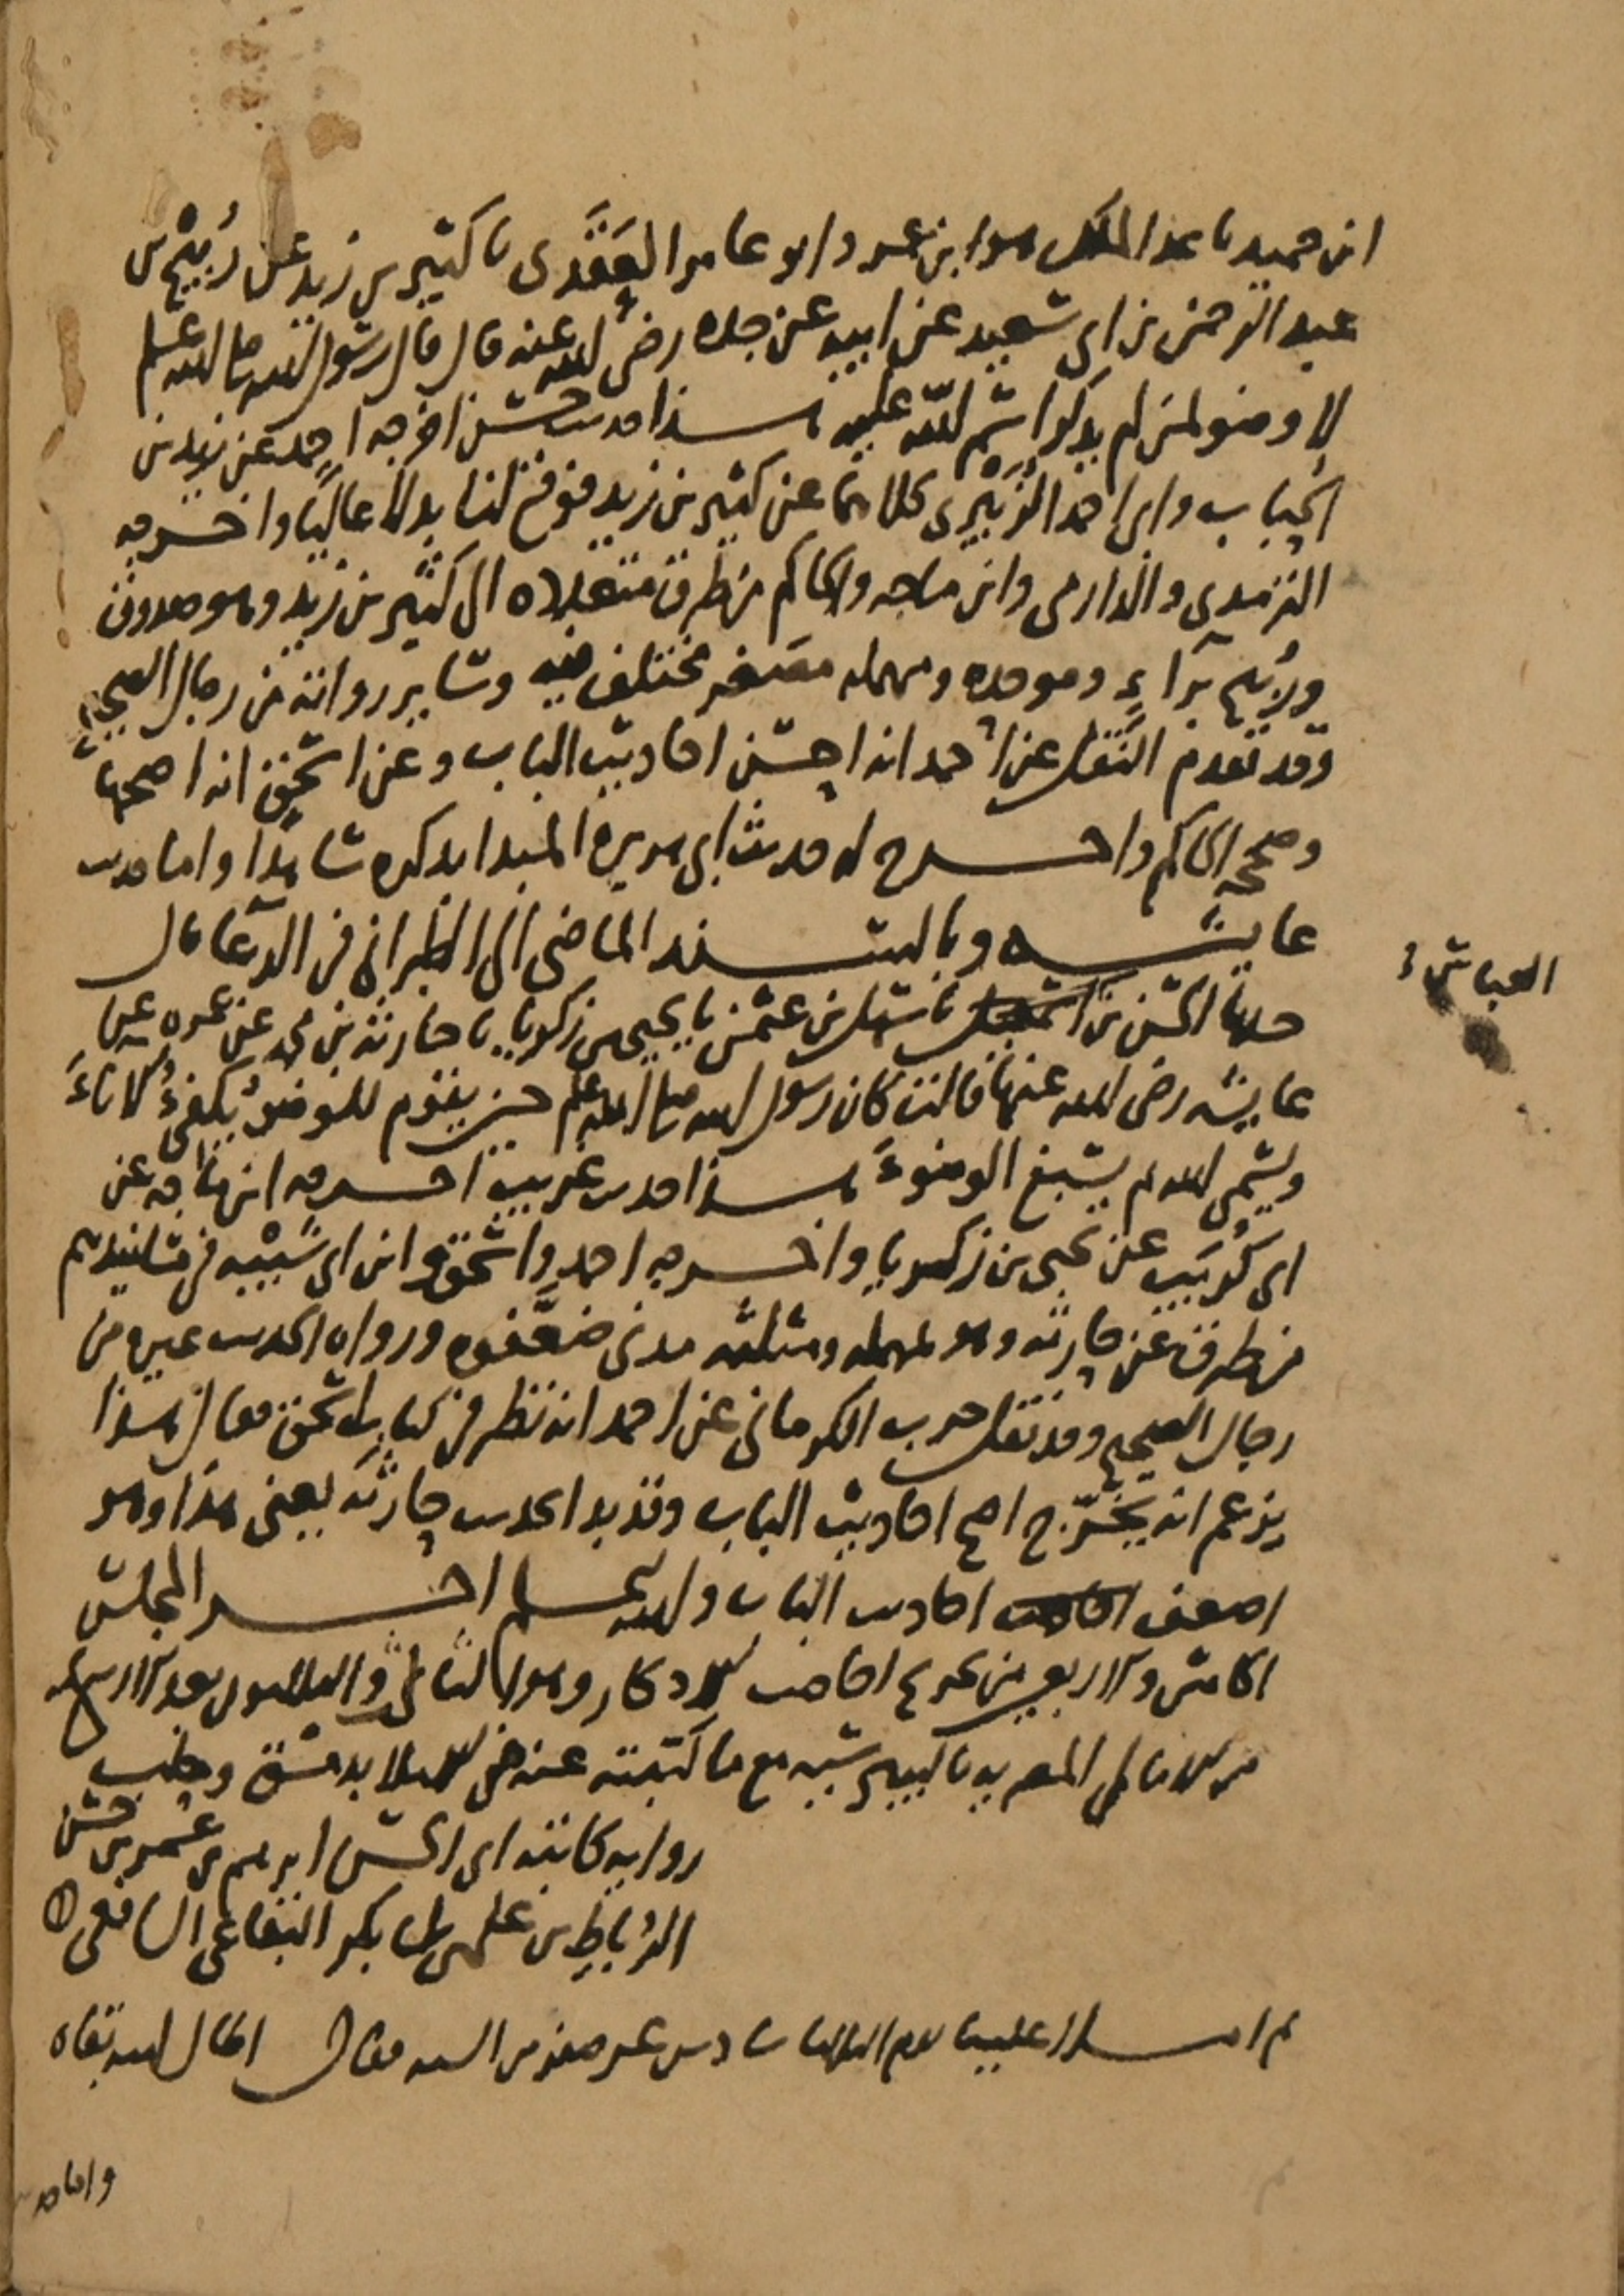 ابن حميد نا عبد الملك هو ابن عمرو ابو عامر العَقَدى نا كثير بن زيد عن رُبَيْح بن
عبد الرحمن بن ابى سعيد عن ابيه عن جده رضى الله عنه قال قال رسول الله صلى الله عليه وسلم
لا وضو لمن لم يذكر اسم الله عليه هذا حديث حسن اخرجه احمد عن زيد بن
الحباب وابى احمد الزُبَيْرى كلاهما عن كثير بن زيد فوقع لنا بدلا عاليًا واخرجه
الترمذى والدارمى وابن ماجه والحاكم من طرق متعددة الى كثير بن زيد وهو صدوق
ورُبَيح براءٍ وموحده ومهمله مصغر مختلف فيه وسائر رواته من رجال الصحيح
وقد تقدم النقل عن احمد انه احسن احاديث الباب وعن اسحق انه اصحها
وصححه الحاكم واخرج له حديث ابى هريرة المبدا بذكره شاهدًا واما حديث
عايشه وبالسند الماضى الى الطبرانى فى الدعا قال
حدثنا الحسن بن نا سهل بن عثمن نا يحيى بن زكريا نا حارثة بن محمد عن عمره عن
العباس
عايشه رضى الله عنها قالت كان رسول الله صلى الله عليه وسلم حين يقوم للوضوء يكفئُ الاناءَ
ويسمى الله ثم يسبغ الوضوءَ هذا حديث غريب اخرجه ابن ماجه عن
ابى كُرَيب عن يحيى بن زكريا واخرجه احمد واسحق وابن ابى شَيْبه فى مسانيدهم
من طرق عن حارثه وهو بمهمله ومثلثه مدنى ضعَّفوه ورواه الحديث غيره من
رجال الصحيح وقد نقل حرب الكرمانى عن احمد انه نظر فى كتاب اسحق فقال هذا
يزعم انه يخرّج اصح احاديث الباب وقد بدا بحديث حارثه يعنى هذا وهو
اضعف احاديث الباب والله اعلم اخر المجلس
الخامس والاربعين من تخريج احاديث الاذكار وهو الثانى والثلاثون بعد الاربعمايه
من الامالى المصريه بالبيبرسيه مع ما كتبته عنه من الاملا بدمشق وحلب
روايه كاتبه ابى الحسن ابرهيم بن عمر بن حسن
الرُباطِ بن على بن ابى بكر البقاعى الشافعى
ثم املا علينا يوم الثلاثا سادس عشر صفر من السنه فقال اطال الله بقاه
واما حديث